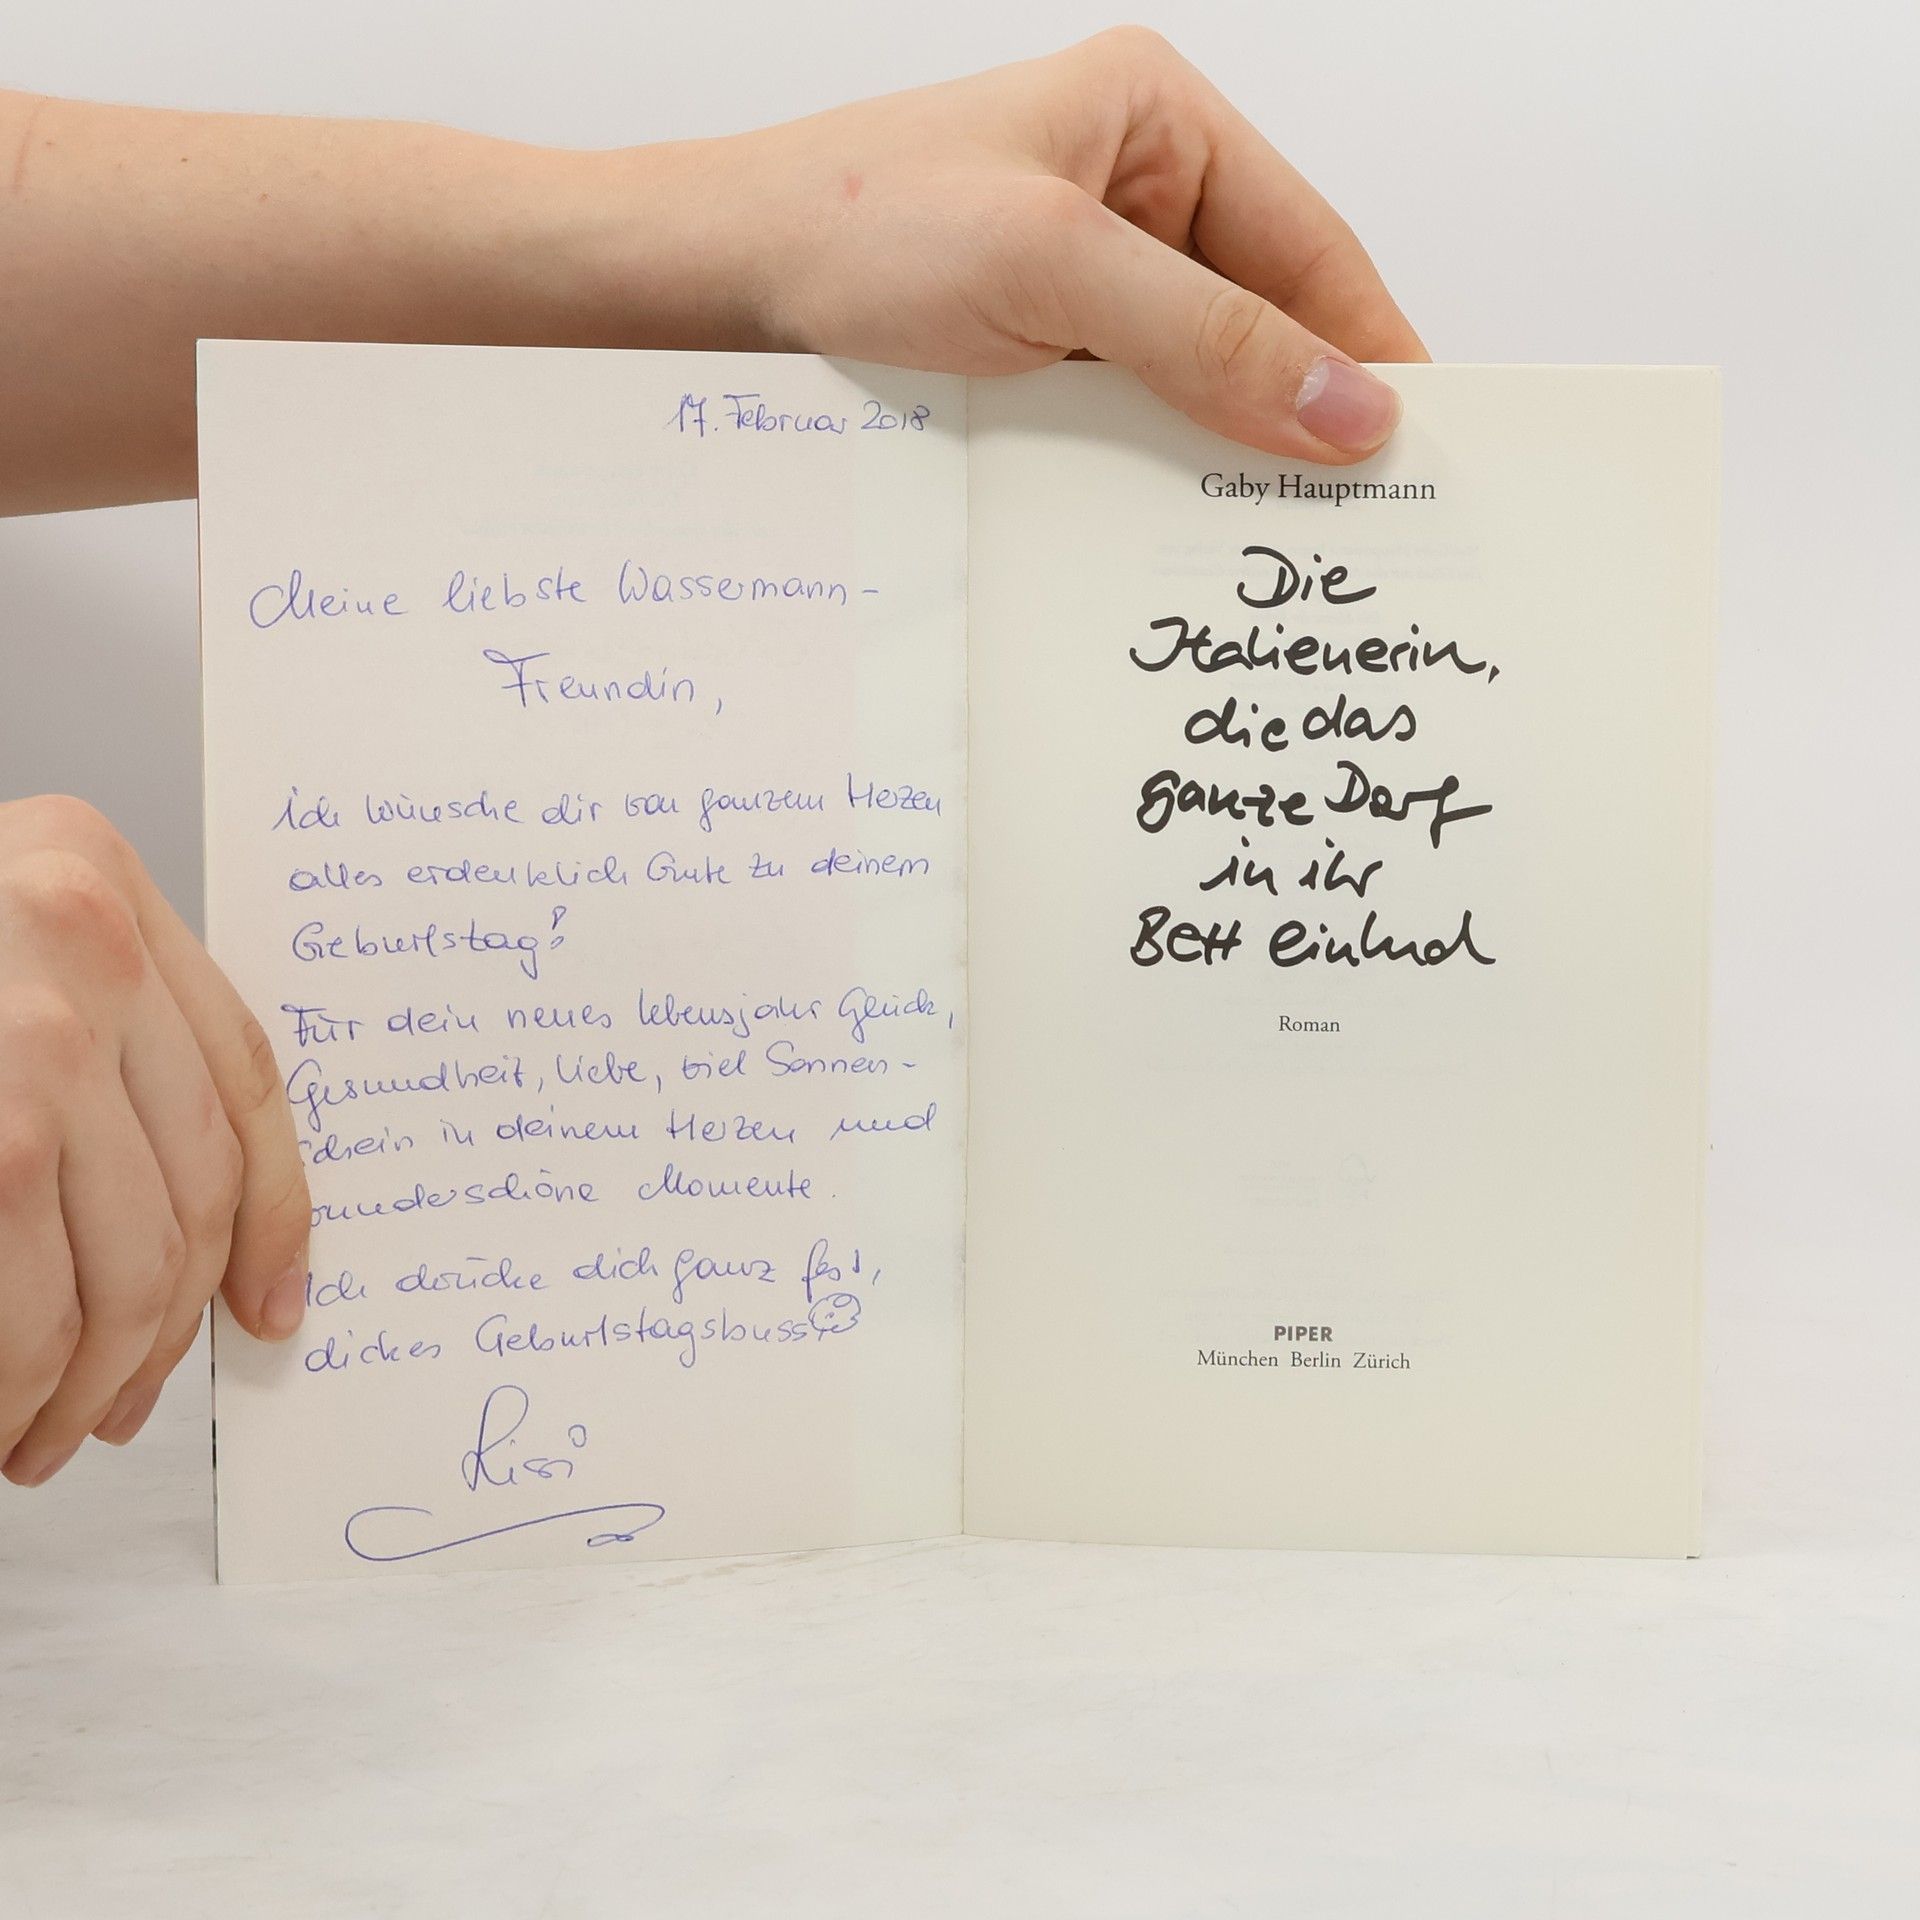 17. Februar 2018
Meine liebste Wassermann-
Freundin,
ich wünsche dir von ganzem Herzen
alles erdenklich Gute zu deinem
Geburtstag!
Für dein neues Lebensjahr Glück,
Gesundheit, Liebe, viel Sonnen-
schein in deinem Herzen und
wunderschöne Momente.
Ich drücke dich ganz fest,
dickes Geburtstagsbussi
Gaby Hauptmann
Die
Italienerin,
die das
ganze Dorf
in ihr
Bett einlud
Roman
PIPER
München Berlin Zürich